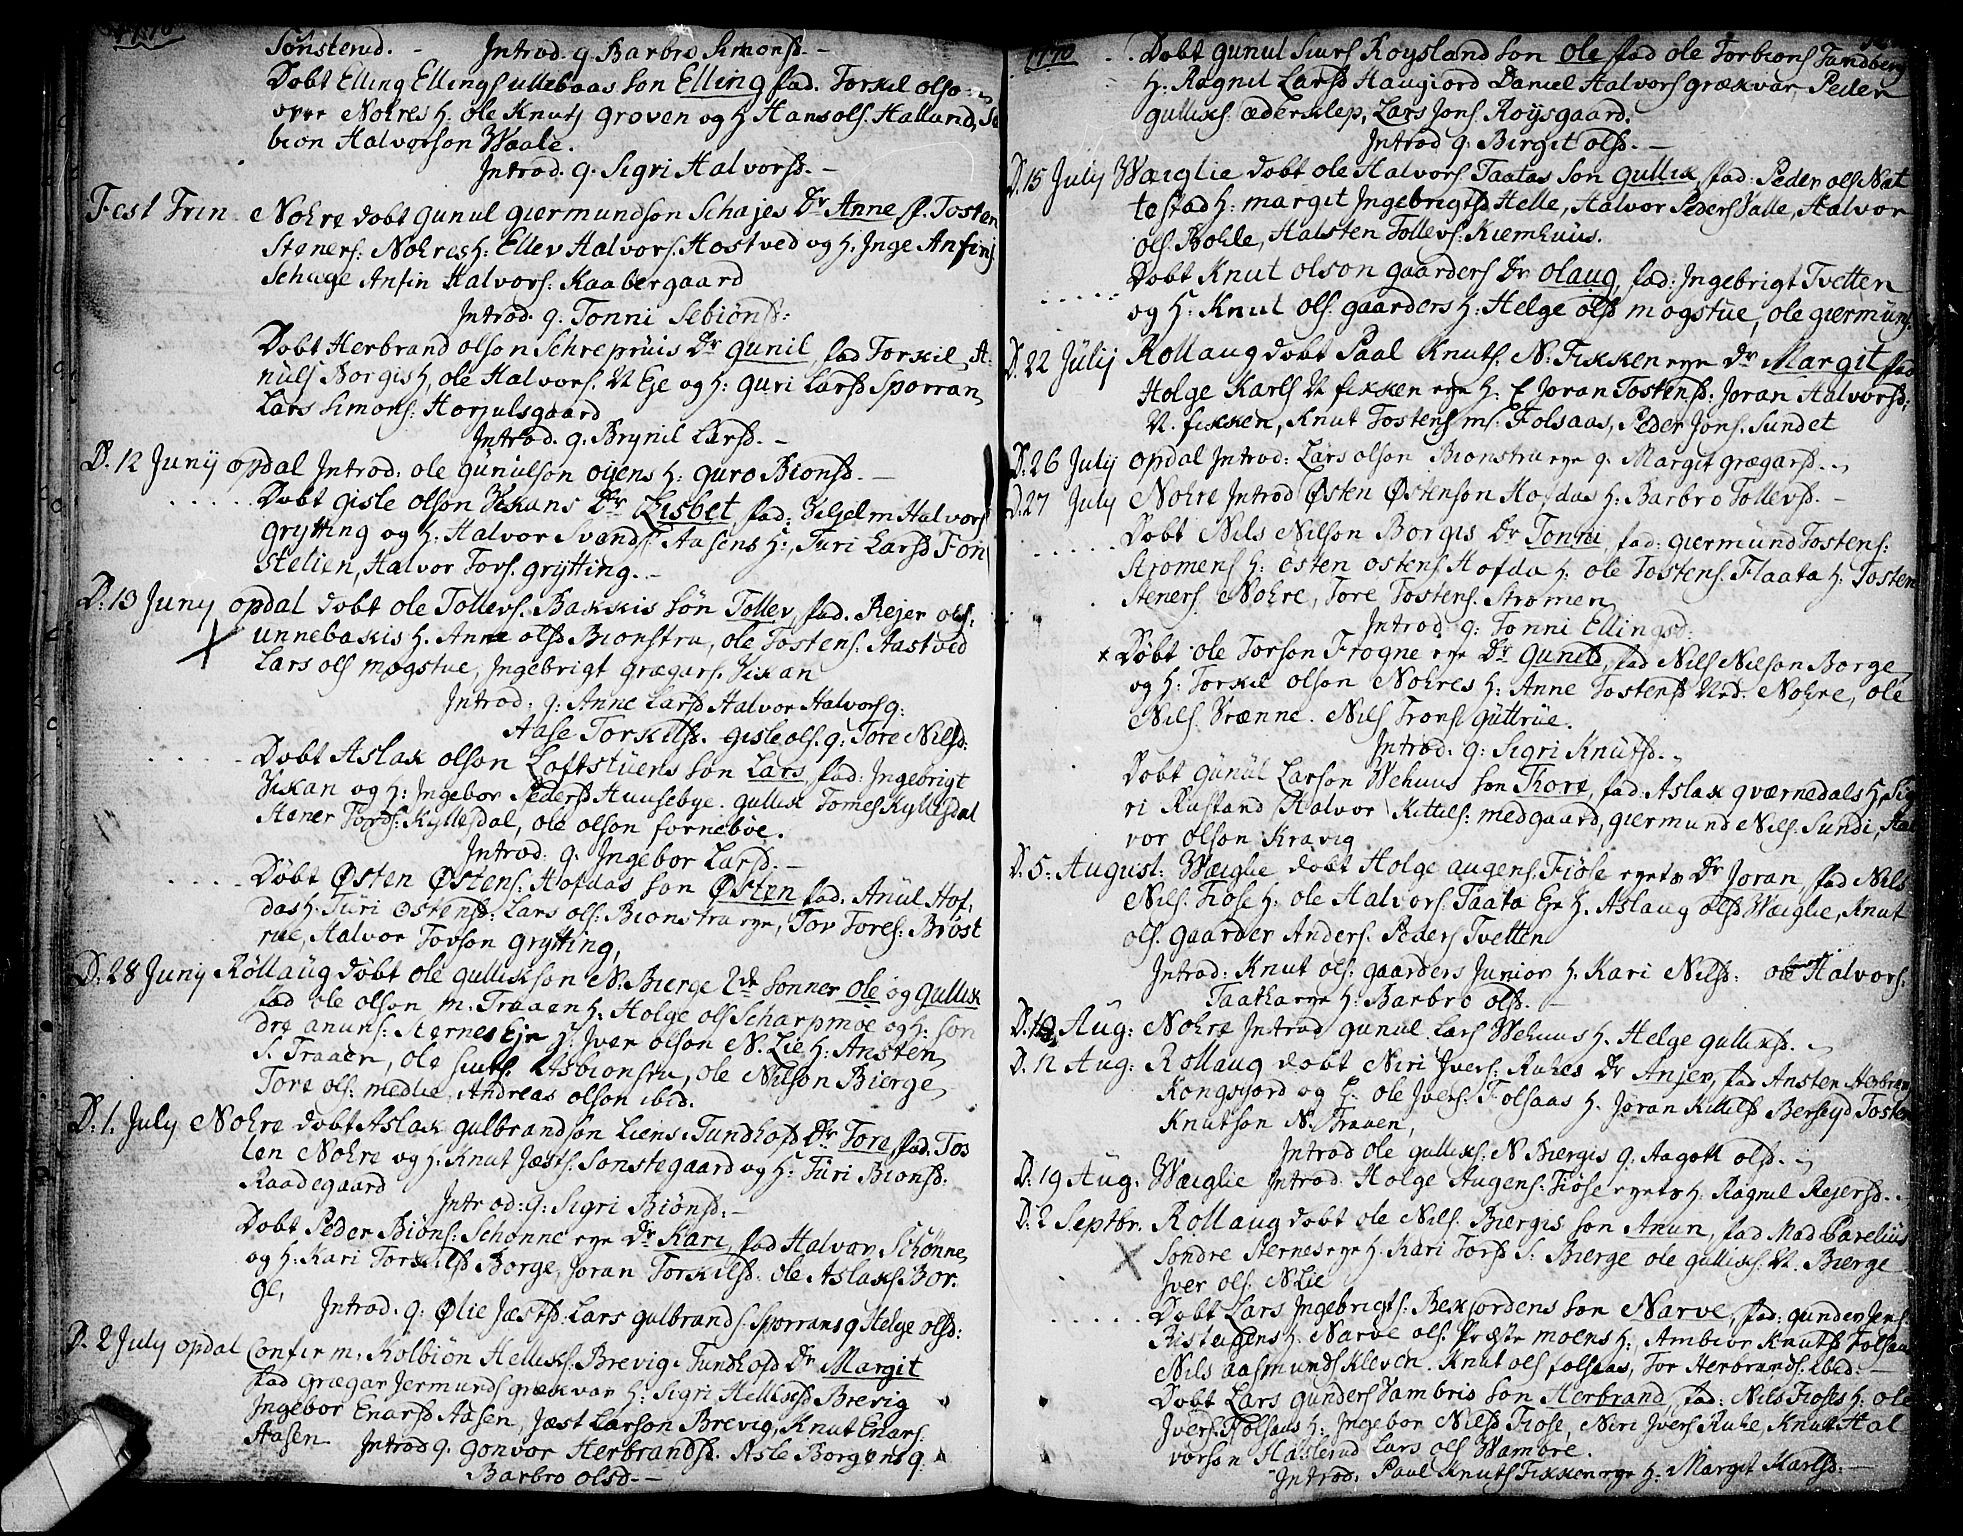 1770
Sønsterud. - Introd. q. Barbro Simonsd. -
Døbt Elling Ellings ullebaas søn Elling fad. Torkil olsø
øvre Nohres H: ole Knuts groven og H Hans ols. Halland, Se
biøn Halvorson Waale.
Introd. q. Sigri Halvorsd. -
Fest Trin Nohre døbt gunul giermundsøn Schajes Dr Anne f. Tosten
Steners: Nohres H: Ellev Halvors. Hostved og H. Inge Anfins
Schage Anfin Halvors: Kaabergaard
Introd. q: Tonni Sebiønsd:
Døbt Herbrand olson Schrepruis Dr gunil, fad Torkil A.
nuls Norgis H, ole Halvors. N Eje og H: guri Larsd Sporran,
Lars Simons: Horjulsgaard
Introd. q. Brynil Larsd. -
D. 12 Junij opdal Introd: ole gunulson øyens H: guro Biønsd. -
Døbt gisle olson Vikans Dr Lisbet fad: Viljelm Halvors
grytting og H. Halvor Svends Aasens H:, Turi Larsd Føn
stelien, Halvor Tors. grytting. -
D: 13 Junij opdal døbt ole Tollevs. Bakkis søn Tollev, fad. Rejer ols:
unnebakis H. Anne olsd Biønstru, ole Tostens. Aastved
Lars ols mogstue, Ingebrigt grægars. Vikan
Introd: q: Anne Larsd Halvor Halvors q:
Aase Torkilsd. gisle ols. q: Tore Nilsd:
Døbt Aslak olson Loftstuens søn Lars, fad: Ingebrigt
Vikan og H: Ingebor Pedersd Huusebye. gullik Tomes Kyllesdal
Hener Tords: Kyllesdal, ole olson fornebøe.
Introd: q. Ingebor Larsd. -
Døbt Østen Østens: Hofdas søn Østen fad. Anul Hof,
das H: Turi Østensd: Lars ols: Biønstru eye, Tor Tores: Brøst
rue, Halvor Torson grytting,
D: 28 Junij Røllaug døbt ole gullikson N: Bierge 2de sønner ole og gullik
fad ole olson m. Traaen H: Holge ols Scharpmoe og H: søn
dre anuns: Sternes Eje H: Jver olson N. Lie H: Ansten
S. Traaen, ole Asbionsru, ole Nilson Bierge,
Tore ols: medlie, Andreas olson ibid.
D: 1. July Nohre døbt Aslak gulbrandson Liens i Tundhofd Dr Tore, fad. Tos
ten Nohre og H: Knut Jæsts: Sønstegaard og H: Turi Biønsd.
Raadegaard Introd: q: Sigri Biønsd: -
Døbt Peder Biøns: Schonne eye Dr Kari, fad Halvor Schønne,
og H: Kari Torkilsd Borge, Joran Torkilsd. ole Aslaks Bor.
ge, Introd. q: Ølie Jæstsd: Lars gulbrands Sporrans q Helge olsd:
D. 2 July opdal Confirm. Kolbiøn Helliks. Brevig i Tundhofd Dr Margit
fad grægar Jermunds grækvar H: Sigri Helliksd Brevig
Ingebor Enarsd Aasen, Jæst Larson Brevig, Knut Enars:
Aasen Introd q. gonvor Herbrandsd. Asle Borgens q.
Barbro olsd. -
1770 Døbt gunul Siurs Roysland søn ole fad ole Torbions Sandberg
H. Ragnil Larsd Haugiord Daniel Halvors grækvar, Peder
gulliks. æderklep, Lars Jons. Roysgaard.
Introd q: Birgit olsd. -
D. 15 July Wæglie døbt ole Halvors Taatas søn gullik, fad: Peder ols Nat
testad H: margit Ingebrigtsd Helle, Halvor Peders Valle, Halvor
ols Bohle, Halsten Tollevs: Kiemhuus.
Døbt Knut olson gaarders Dr olaug, fad: Ingebrigt Tvetten
og H: Knut ols: gaarders H: Helge olsd mogstue, ole giermuns
D. 22 Julij Rollaug døbt Paal Knuts. N: Fikken eye Dr Margit, fad
Holge Karls N fikken eye H: Joran Tostensd: Joran Halvorsd:
N. fikken, Knut Tostens m: Folsaas, Peder Jons. Sundet
D. 26 Julij opdal Introd: Lars olson Bionstru eye q. Margit grægarsd.
D. 27 July Nohre Introd Østen Østenson Hofdas H: Barbro Tollevsd. -
Døbt Nils Nilson Borgis Dr Tonni, fad: giermund Tostens:
Stromens H: østen ostens Hofda H: ole Tostens. Flaata H: Tosten
Steners. Nohre, Tore Tostens. Stromen,
Introd: q: Tonni Ellingsd:
Døbt ole Torson Frogne eye Dr gunild, fad Nils Nilson Borge,
og H: Torkil olson Nohres H: Anne Tostensd Ned: Nohre, ole
Nils. Brænne. Nils Trons guttrue.
Introd. q: Sigri Knutsd.
Døbt gunul Larson Wehuus søn Thore, fad: Aslak qværnedals H: Sig
ri Rustand Halvor Kittels: medgaard, giermund Nils. Sundi, Hal
vor olson Kravig
D. 5. August: Wæglie døbt Holge augens. Fiose eyets Dr Joran, fad Nils
Nils. Fiose H: ole Halvors: Taata Eje H. Aslaug olsd Wæglie, Knut
ols. gaarder Anders. Peders Tvetten
Introd: Knut ols: gaarders Junior H. Kari Nilsd: ole Halvors:
Taatka eye H: Barbro olsd. -
Aug: Nohre Introd gunul Lars Wehuus H. Helge gulliksd.
D. 12 Aug: Rollaug døbt Niri Jvers: Ruhes Dr Anjer, fad Ansten Herbrans
Kongsjord og H. ole Jvers: Folsaas H. Joran Kittilsd Berseyd Tosten
Knutson N. Traaen,
Introd ole gulliks. N Biergis q. Aagoth olsd.
D. 19 Aug. Wæglie Introd. Holge Augens: Fiose eyets H. Ragnil Rejersd. -
D. 2 Septbr. Rollaug døbt ole Nils. Biergis søn Anun, fad Mad Parelius
Søndre Sternes eye H: Kari Torsd S. Bierge ole gulliks. N. Bierge
Jver ols. N Lie
Døbt Lars Ingebrigts: Bekjordens søn Narve, fad: gunder Jens:
Bistugens H. Narve ols. Præste moens H: Ambior Knutsd Folsaas
Nils aasmunds Kleven. Knut ols folsaas, Tor Herbrands: ibid: -
Døbt Lars gunders Vambris søn Herbrand, fad: Nils Fioses H: ole
Jvers: Folsaas H: Ingebor Nilsd Fiose, Niri Jvers Ruhe, Knut Hal
vorson Haslerud Lars ols Wambre.
Introd: Paul Knuts Fikken eye H: Margit Karlsd: -